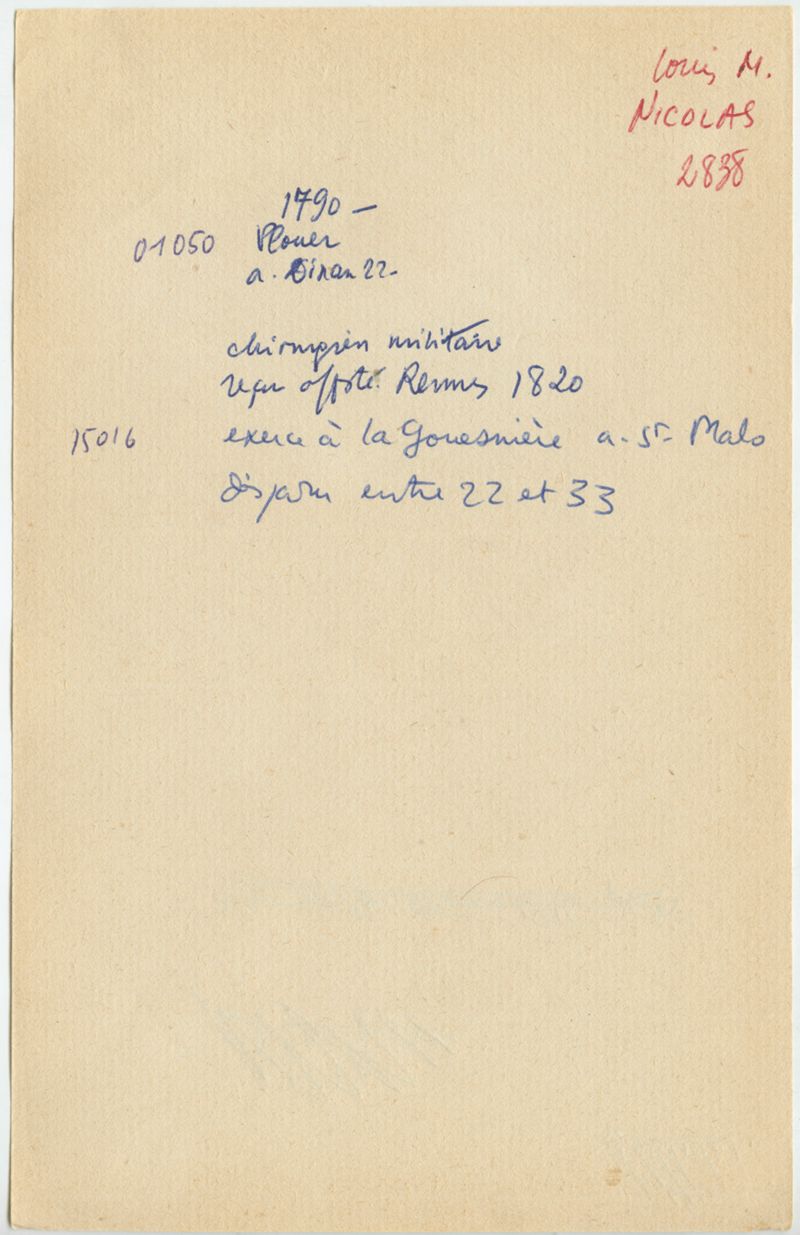 Louis M.
NICOLAS
2838
1790 —
01050 Plouer
a. Dinan 22-
chirurgien militaire
reçu offsté Rennes 1820
15016 exerce à la Gouesnière a. St- Malo
disparu entre 22 et 33